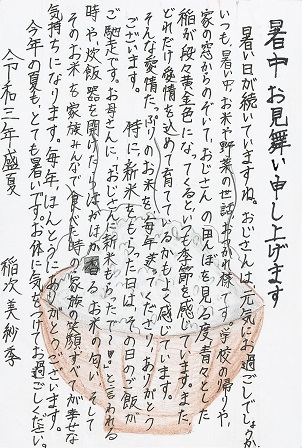 暑中お見舞い申し上げます
暑い日が続いていますね。おじさんは元気にお過ごしでしょうか。
いつも、暑い中、お米や野菜の世話、おつかれ様です。学校の帰りや、
家の窓からのぞいて、おじさんの田んぼを見る度、青々とした
稲が段々黄金色になってくるといつも季節を感じています。また、
どれだけ愛情を込めて育てているかもよく感じています。
そんな愛情たっぷりのお米を毎年くださり、ありがとう
ございます。特に、新米をもらった日は、その日のご飯が
ご馳走です。お母さんに、「おじさんに新米もらったよ〜♥」と言われる
時や炊飯器を開けたりほおばる お米の匂い、そして
そのお米を家族みんなで食べた時の家族の笑顔、すべてが幸せな
気持ちになります。毎年、ほんとうにありがとうございます。
今年の夏も、とても暑いです。お体に気をつけてお過ごしください。
令和三年盛夏
稲次美紗季